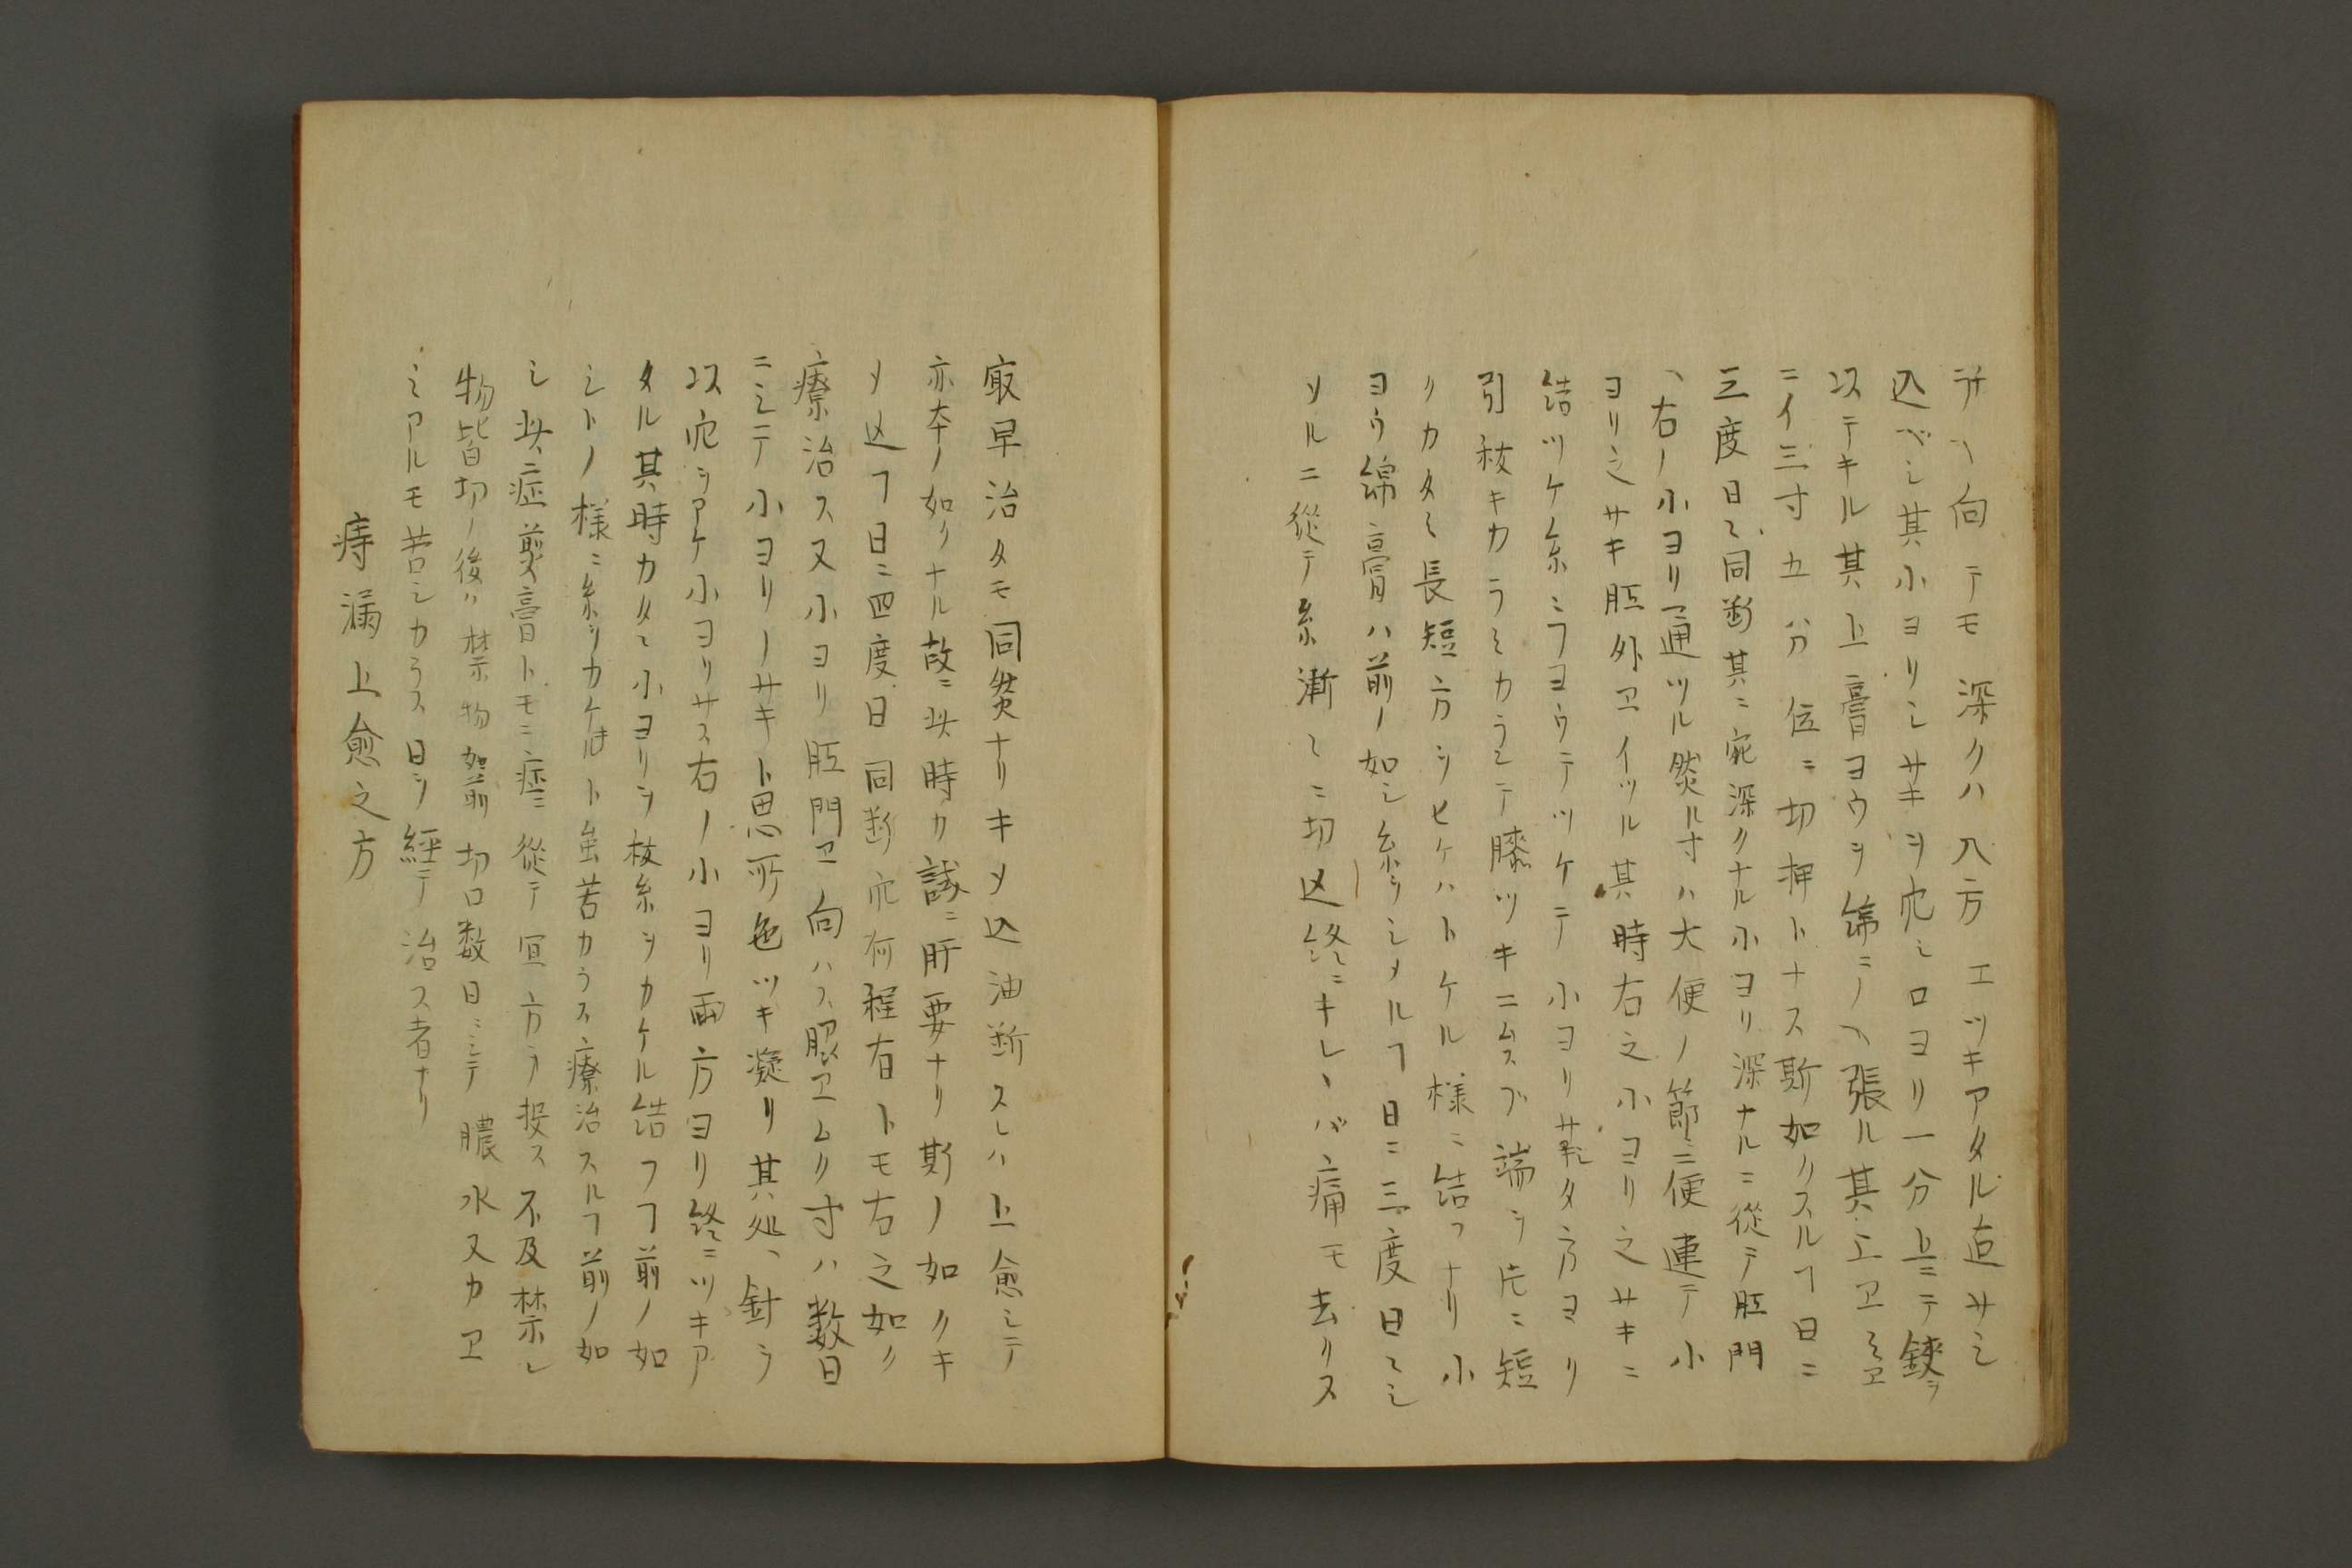 ヘ向テモ深クハ入方エツキアタル迄サシ
込ベシ其小ヨリシサキヲ穴シロヨリ一分上ニテ鋏ヲ
以テキル其上膏ヨウヲ綿ニノヘ張ル其上ヱ
ニイ三寸五分位ニ切押トナス斯如クスルヿ日ニ
三度日〻同断其ニ穴深クナル小ヨリ深ナルニ從テ肛門
ヘ右ノ小ヨリ通ツル然ル寸ハ大便ノ節ニ便連テ小
ヨリ之サキ肛外ヱイツル其時右之小ヨリ之サキニ
結ツケ糸ニフヨウテツケテ小ヨリ タ方ヨリ
引抜キカラミカラミテ膝ツキニムスブ端ヲ片ニ短
クカタ〻長短方シヒケハトケル様ニ結フナリ小
ヨウ綿膏ハ前ノ如シ糸ヲシメルヿ日ニ三度日〻シ
メルニ從テ糸漸〻ニ切込終ニキレヽバ痛モ去リス
最早治タモ同然ナリキメ込油断スレハ上愈シテ
亦本ノ如クナル故ニ此時カ誠ニ肝要ナリ斯ノ如クキ
メ込ヿ日ニ四度日同断穴何程有トモ右之如ク
療治ス又小ヨリ肛門ヱ向ハス脇ヱムク寸ハ数日
ニシテ小ヨリノサキト思所色ツキ凝リ其処ヽ針ヲ
以穴ヲアケ小ヨリサス右ノ小ヨリ両方ヨリ終ニツキア
タル其時カタ〻小ヨリヲ抜糸ヲカケル結フヿ前ノ如
シトノ様ニ糸ヲカケルトモ苦カラス療治スルヿ前ノ如
シ此症煎膏トモニ症ニ從テ宜方ヲ投ス不及禁シ
物皆切ノ後ハ禁物如前切口数日ニシテ膿水又カヱ
シアルモ苦シカラス日ヲ經テ治ス者ナリ
痔漏上愈之方